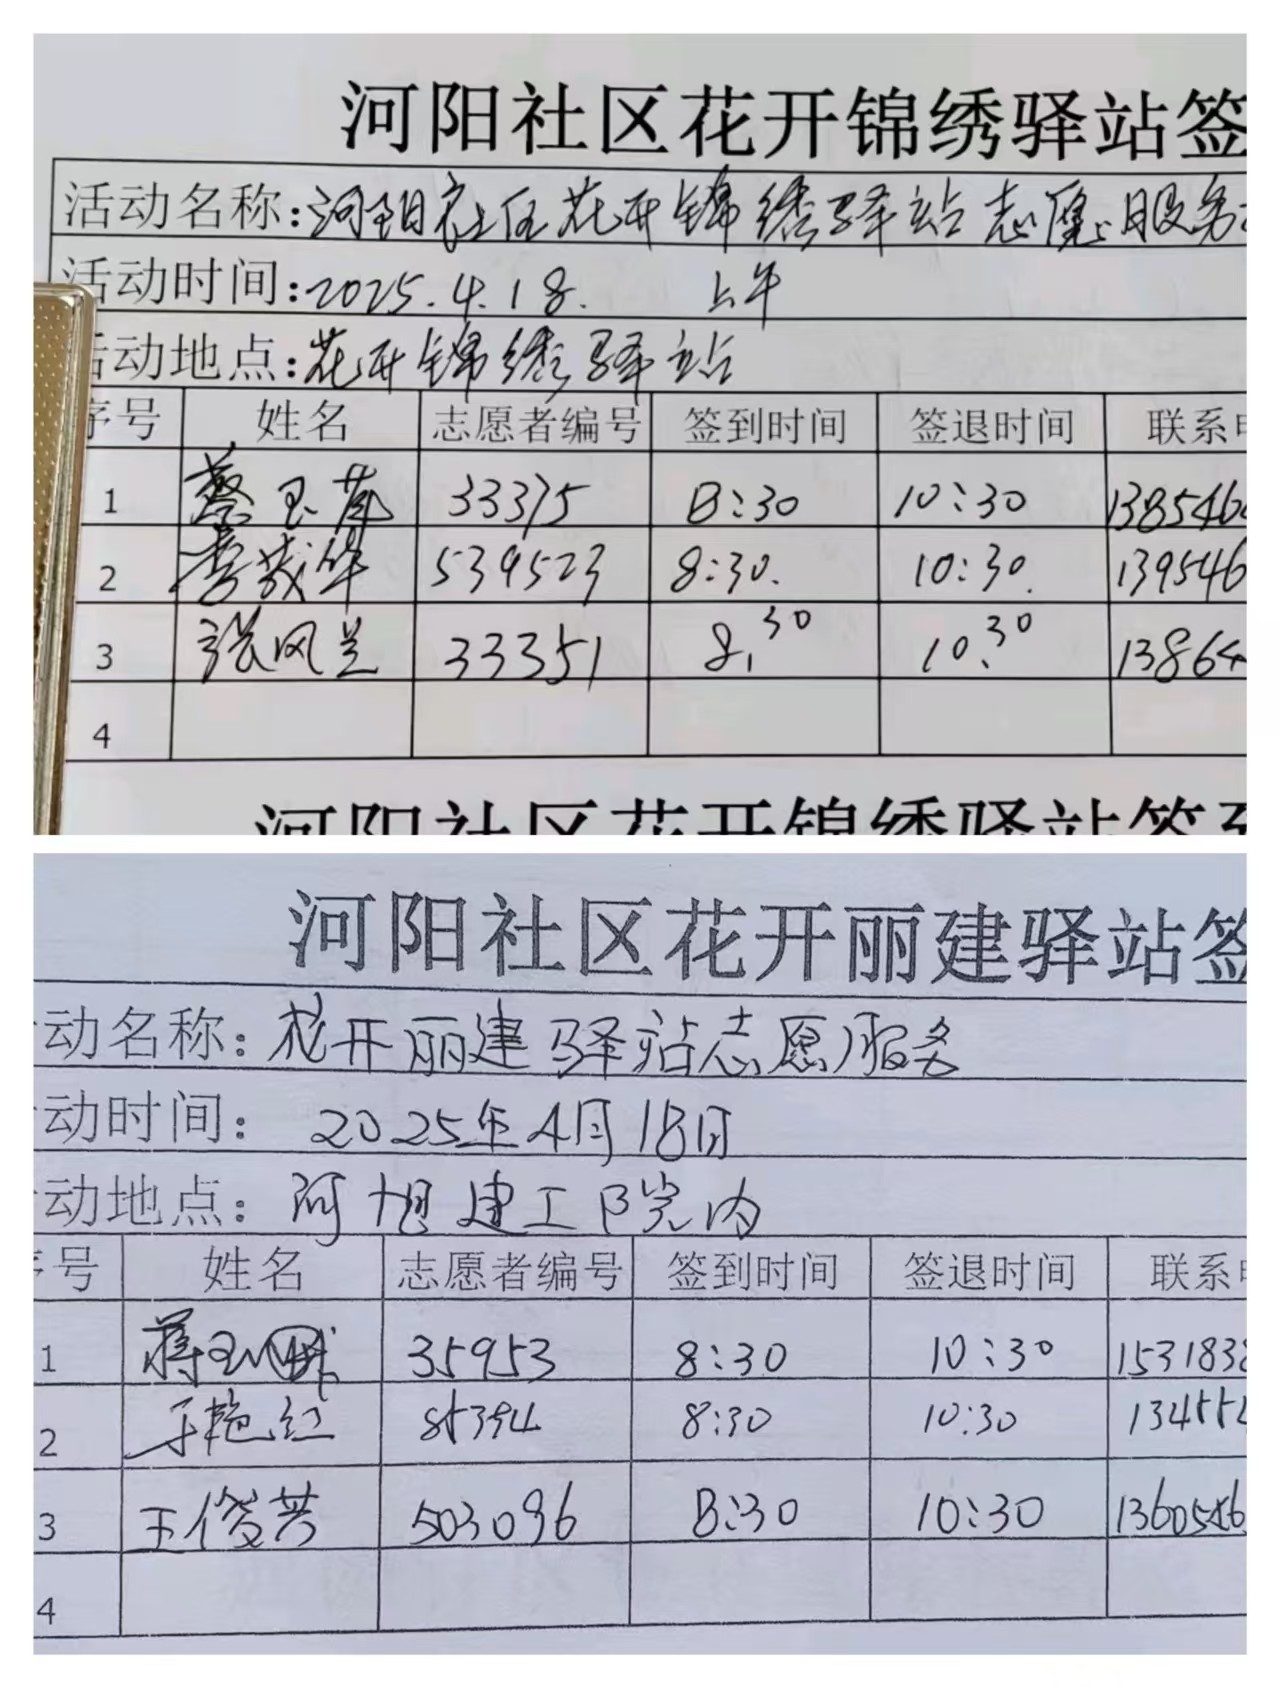 河阳社区花开锦绣驿站签
活动名称:河阳社区花开锦绣驿站志愿服务
活动时间:2025.4.18. 上午
活动地点:花开锦绣驿站
序号 姓名 志愿者编号 签到时间 签退时间 联系电
1 蔡玉 33375 8:30 10:30 138546
2 华 539523 8:30. 10:30. 139546
3 张风兰 33351 8:30 10:30 13864
4
河阳社区花开锦绣驿站签到
动名称:花开丽建驿站志愿服务
动时间: 2025年4月18日
动地点: 阿旭建工院内
序号 姓名 志愿者编号 签到时间 签退时间 联系电
1 蒋玉 35953 8:30 10:30 153183
2 于艳红 85394 8:30 10:30 13455
3 王俊芳 503096 8:30 10:30 1360546
4